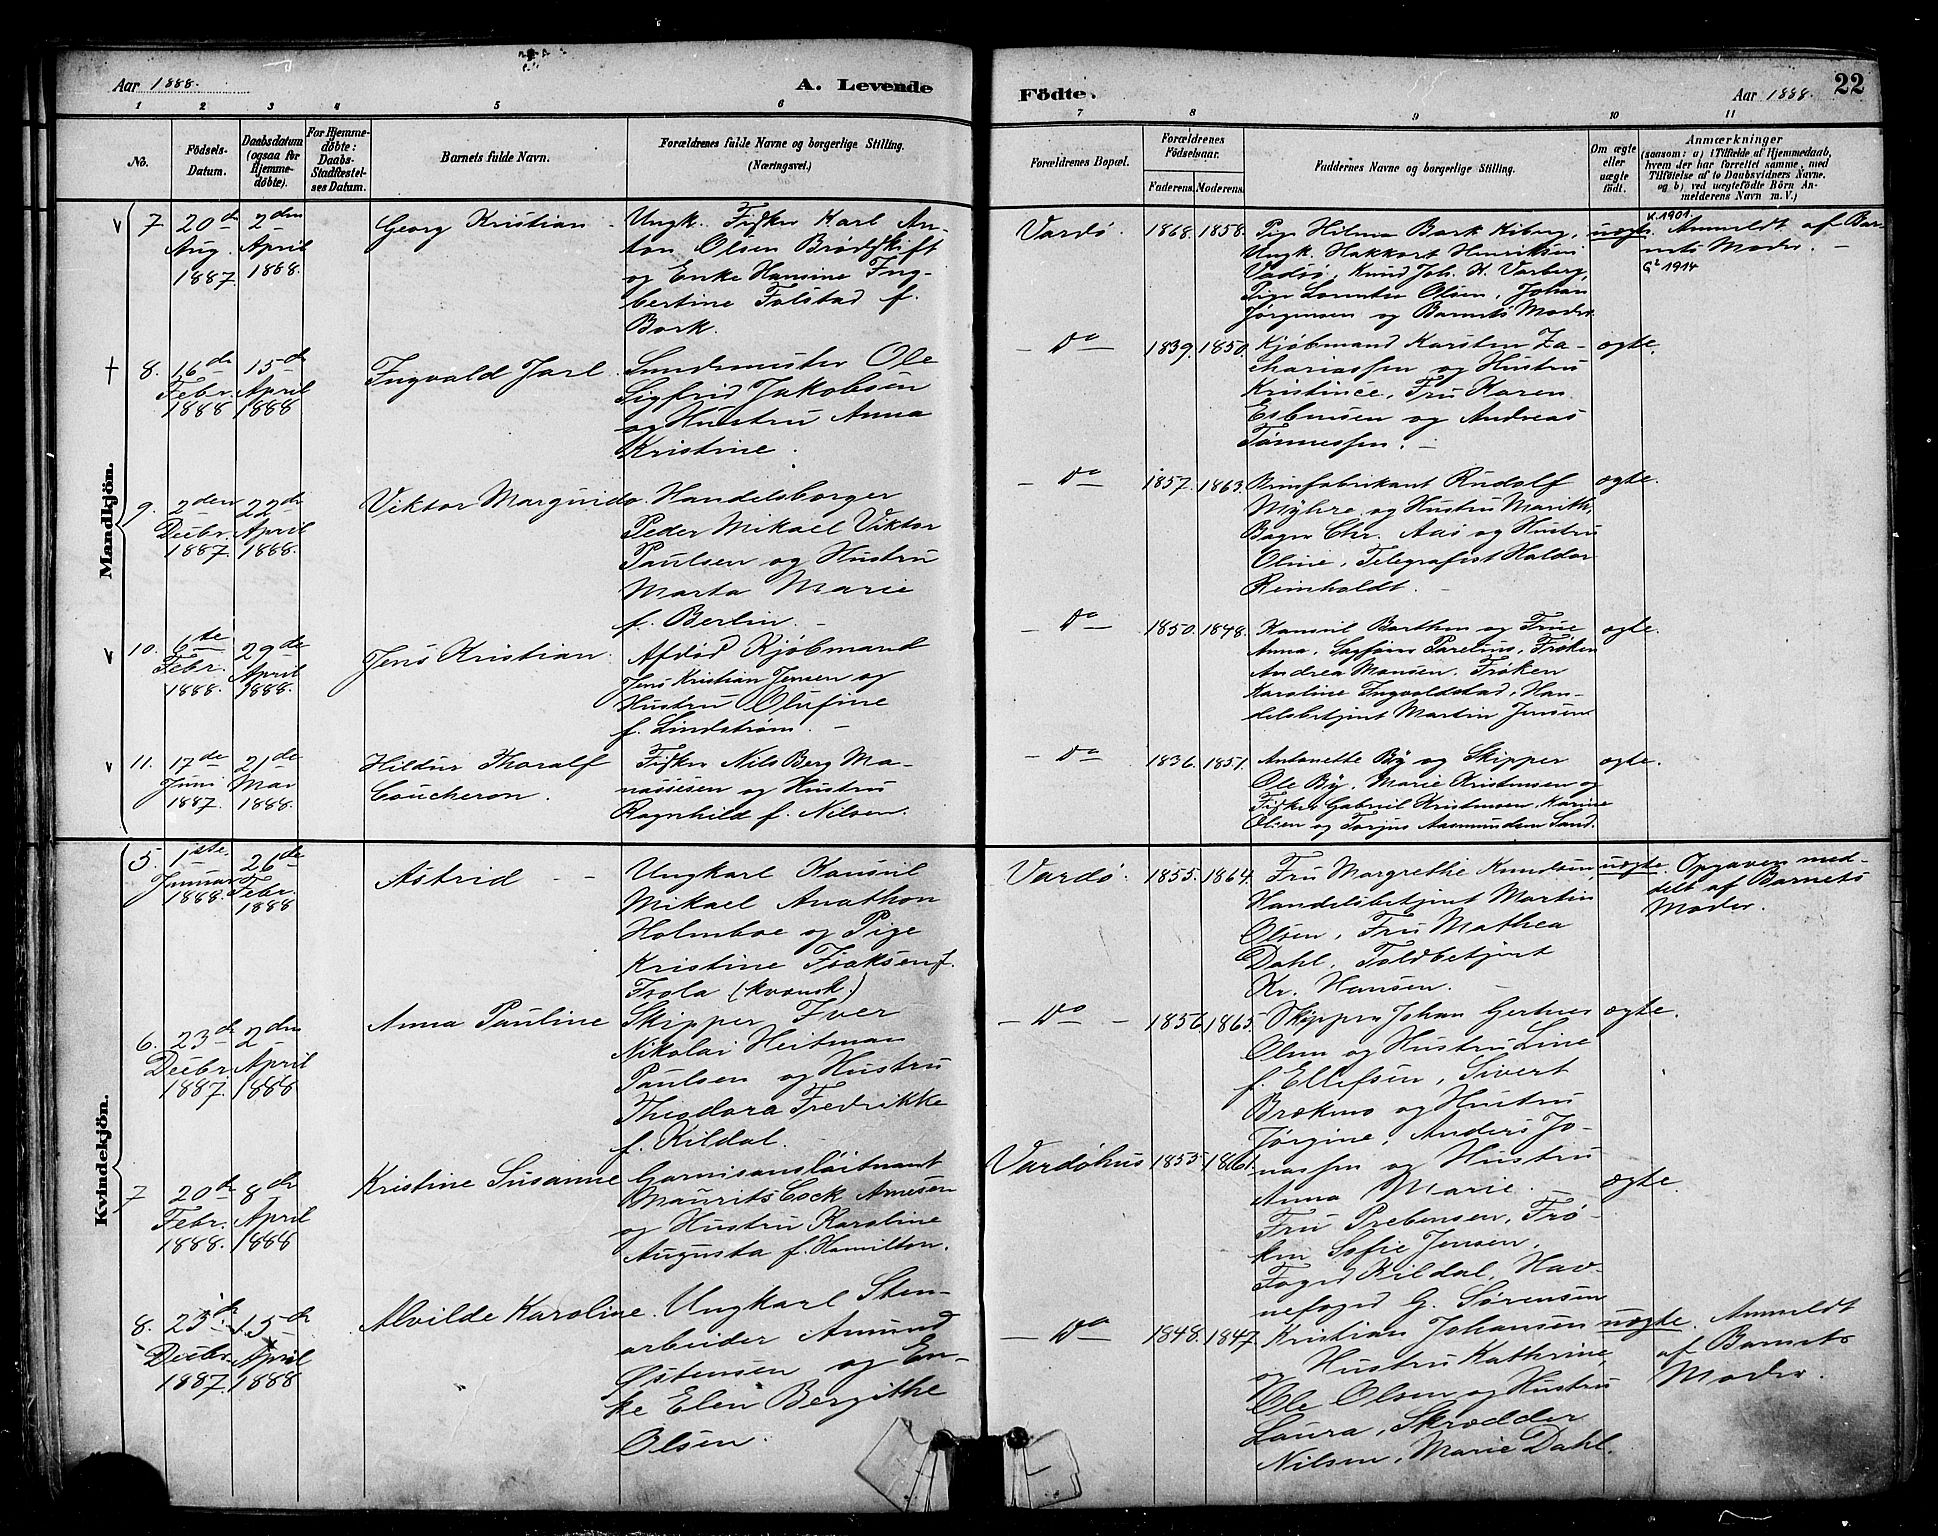 Aar 1888.
A. Levende
1 2 3 4 5 6
No.
Födsels-
Datum.
Daabsdatum
(ogsaa for
Hjemme-
döbte).
For Hjemme-
döbte:
Daabs-
Stadfæstel-
ses Datum.
Barnets fulde Navn.
Forældrenes fulde Navne og borgerlige Stilling.
(Næringsvei.)
Mandkjön.
7 20de 2den Georg Kristian Ungk. Fisker Karl An-
Aug. April ton Olsen Brødskift
1887 1888 og Enke Hansine Ing-
bertine Folstad f.
Bork.
8. 16de 15de Ingvald Jarl. Ole
Febr. April Sigfrid Jakobsen
1888 1888 og Hustru Anna
Kristine.
9. 2den 22de Viktor Handelsborger
Decbr. April Peder Mikael Viktor
1887. 1888. Paulsen og Hustru
Marta Marie
f. Berlin.
10. 6te 29de Jens Kristian. Afdød Kjøbmand
Febr. April Jens Kristian Jensen og
1888. 1888. Hustru Olufine
f. Lindstrøm.
11. 17de 21de Hildur Thoralf Fisker Nils Berg Ma-
Juni Mai Coucheron. nassesen og Hustru
1887. 1888. Ragnhild f. Nilsen.
Kvindekjön.
5. 1ste 26de Astrid Ungkarl Kansul
Januar Febr. Mikael Anathon
1888. 1888 Holmboe og Pige
Kristine Isaksen f.
Isola (kvænsk.)
6. 23de 2den Anna Pauline Skipper Iver
Decbr. April Nikolai Heitman
1887. 1888 Paulsen og Hustru
Theodora Fredrikke
f. Kildal.
7 20de 8de Kristine Susanne Garnisonsløitnant
Febr. April Maurits Cock Arnesen
1888. 1888 og Hustru Karoline
Augusta f. Hamilton.
8. 23de 15de Alvilde Karoline. Ungkarl Sten-
Decbr. April arbeider Amund
1887 1888 Østensen og En-
ke Elen Bergithe
Olsen.
Födte.
Aar 1888. 22
7 8 9 10 11
Forældrenes Bopæl.
Forældrenes
Födselsaar.
Faderens. Moderens.
Faddernes Navne og borgerlige Stilling.
Om ægte
eller
uægte
födt.
Anmærkninger
(saasom: a) i Tilfælde af Hjemmedaab,
hvem der har forrettet samme, med
Tilföielse af to Daabsvidners Navne.
og b) ved uægtefödte Börn An-
melderens Navn m. V.)
K. 1901.
Vardø. 1868. 1858. Pige Hilma Bork Kiberg, uægte. Anmeldt af Bar-
Ungk. Hakkart Henriksen nets Moder.
Vadsø, Knud Joh. K. Varberg, G2 1914
Pige Olsen, Johan
Jørgensen og Barnets Moder.
Do 1839. 1850. Kjøbmand Karsten Za- ægte.
chariassen og Hustru
Kristince, Fru Karen
Esbensen og Andreas
Tønnessen.
Do 1857. 1863. Brusfabrikant Rudolf ægte.
Myhre og Hustru Marith,
Bager Chr. Aas og Hustru
Oline, Telegrafist Haldor
Reinholdt.
Do 1850. 1848. Kansul og Frue ægte.
Anna, Sagfører Parelius, Frøken
Andrea Monsen, Frøken
Karoline Ingvaldstad, Han-
delsbetjent Martin Jensen
Do 1836. 1851. Antonette By og Skipper ægte.
Ole By, Marie Kristensen og
Fisker Gabriel Kristensen, Karine
Olsen og Torjus Aasmundsen Sand.
Vardø. 1855. 1864. Fru Margrethe Knudsen, uægte. Opgaven med-
Handelsbetjent Martin delt af Barnets
Olsen, Fru Mathea Moder.
Dahl, Toldbetjent
Kr. Hansen.
Do 1856 1865. Skipper Johan Olsen og Hustru Line ægte.
f. Ellefsen, Sivert
Brækmo og Hustru
Jørgine, Anders Jo-
nassen og Hustru
Anna Marie
Vardøhus 1853 1861. Fru Prebensen, Frø- ægte.
ken Sofie Jensen,
Foged Kildal, Hav-
nefoged G. Sørensen
Do 1848. 1847 Kristian Johansen uægte. Anmeldt
og Hustru Kathrine, af Barnets
Ole Olsen og Hustru Moder.
Laura, Skrædder
Nilsen, Marie Dahl.